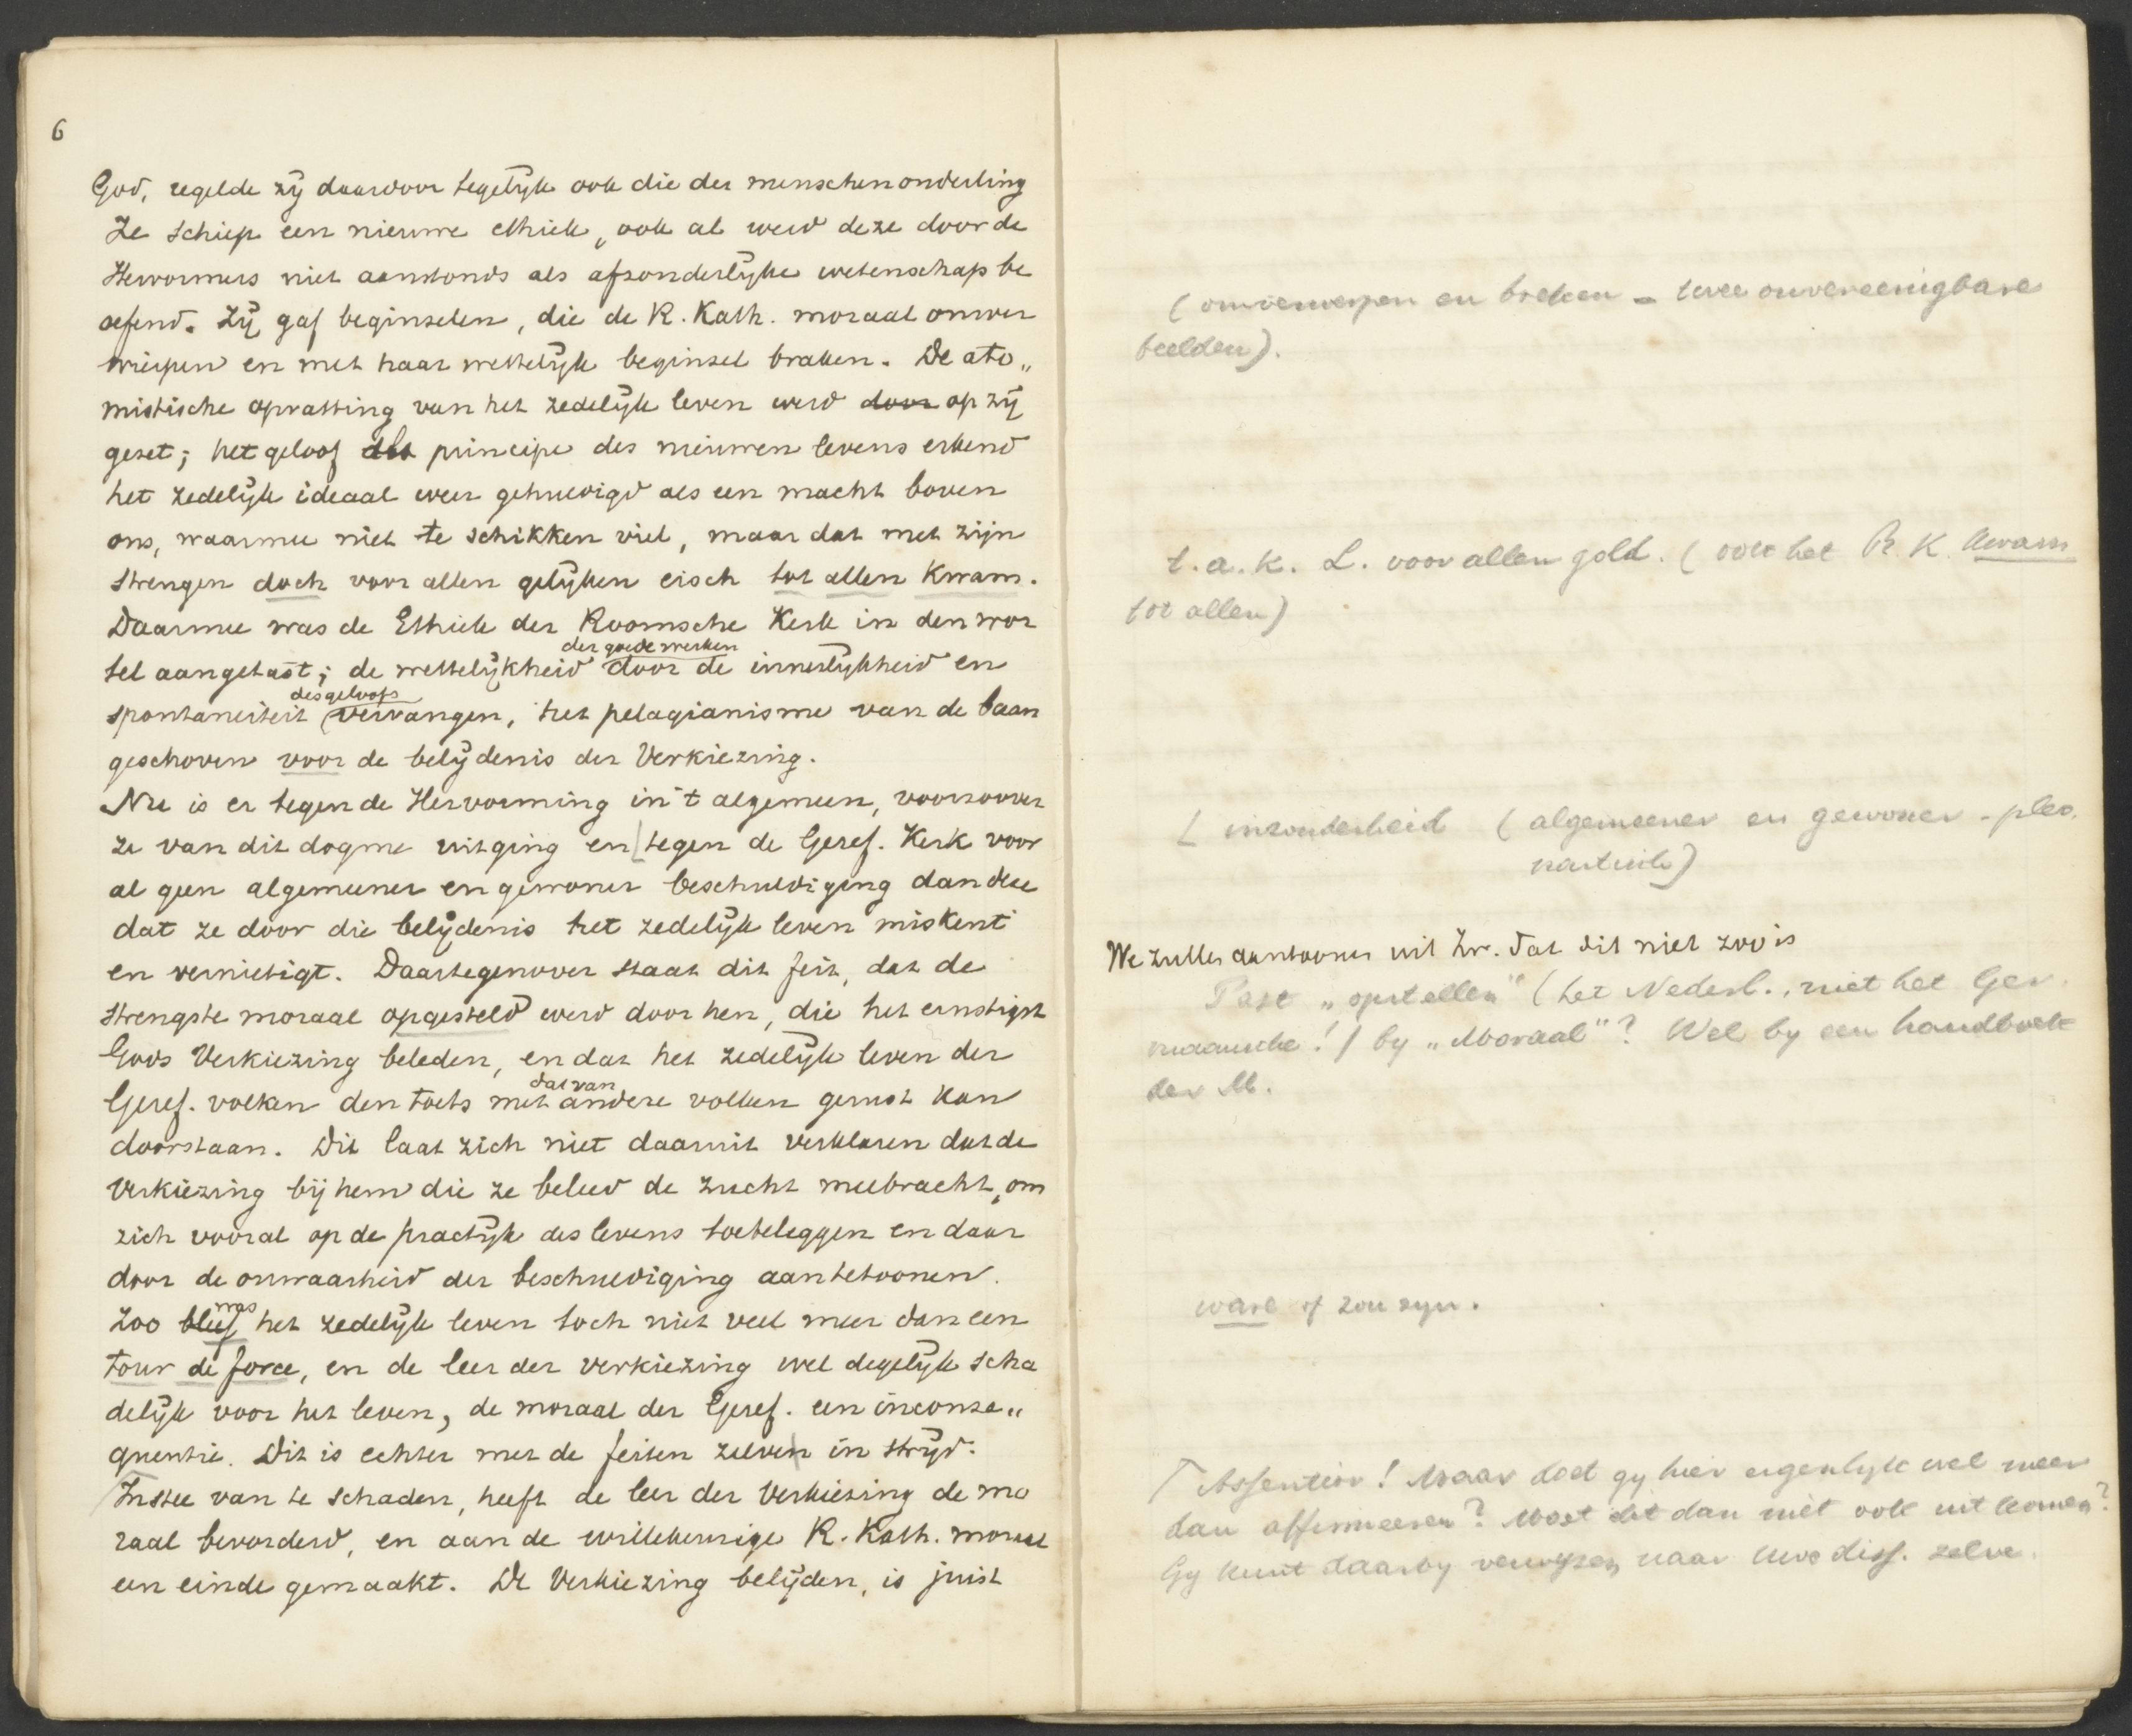 6
God, regelde zij daardoor tegelijk ook die der menschen onderling
Ze schiep een nieuwe ethiek, ook al werd deze door de
Hervormers niet aanstonds als afzonderlijke wetenschap be
oefend. Zij gaf beginselen, die de R. Kath. moraal omver
wierpen en met haar wettelijk beginsel braken. De ato„
mistische opvatting van het zedelijk leven werd door op zij
gezet; het geloof als principe des nieuwen levens erkend
het zedelijk ideaal weer gehuldigd als een macht boven
ons, waarmee niet te schikken viel, maar dat met zijn
strengen doch voor allen gelijken eisch tot allen kwam.
Daarmee was de Ethiek der Roomsche Kerk in den wor
tel aangetast; de wettelijkheid der goede werken door de innerlijkheid en
spontaneiteit des geloofs vervangen, het pelagianisme van de baan
geschoven voor de belijdenis der Verkiezing.
Nu is er tegen de Hervorming in 't algemeen, voorzoover
ze van dit dogme uitging en tegen de Geref. Kerk voor
al geen algemeener en gewoner beschuldiging dan deze
dat ze door die belijdenis het zedelijk leven miskent
en vernietigt. Daartegenover staat dit feit, dat de
strengste moraal opgesteld werd door hen, die het ernstigst
Gods Verkiezing beleden, en dat het zedelijk leven der
Geref. volken den toets met dat van andere volken gerust kan
doorstaan. Dit laat zich niet daaruit verklaren dat de
Verkiezing bij hem die ze beleed de zucht meebracht, om
zich vooral op de practijk des levens toeteleggen en daar
door de onwaarheid der beschuldiging aantetoonen.
Zoo bleef was het zedelijk leven toch niet veel meer dan een
tour de force, en de leer der verkiezing wel degelijk scha
delijk voor het leven, de moraal der Geref. een inconse„
quentie. Dit is echter met de feiten zelven in strijd.
Instee van te schaden, heeft de leer der Verkiezing de mo
raal bevorderd, en aan de willekeurige R. Kath. moraal
een einde gemaakt. De Verkiezing belijden, is juist
(omverwerpen en breken = twee onvereenigbare
beelden).
t. a. k. L. voor allen gold. (ook het R. K. kwam
tot allen)
L inzonderheid (algemeener en gewoner - pleo
nastisch)
We zullen aantoonen uit Zw. dat dit niet zoo is
Past „opstellen" (het Nederl., niet het Ger
maansche!) by „Moraal"? Wel by een handboek
der M.
ware of zou zyn.
Assentior! Maar doet gy hier eigenlyk wel meer
dan affirmeeren? Moet dit dan niet ook uitkomen?
Gy kunt daarby verwyzen naar Uwe diss. zelve.